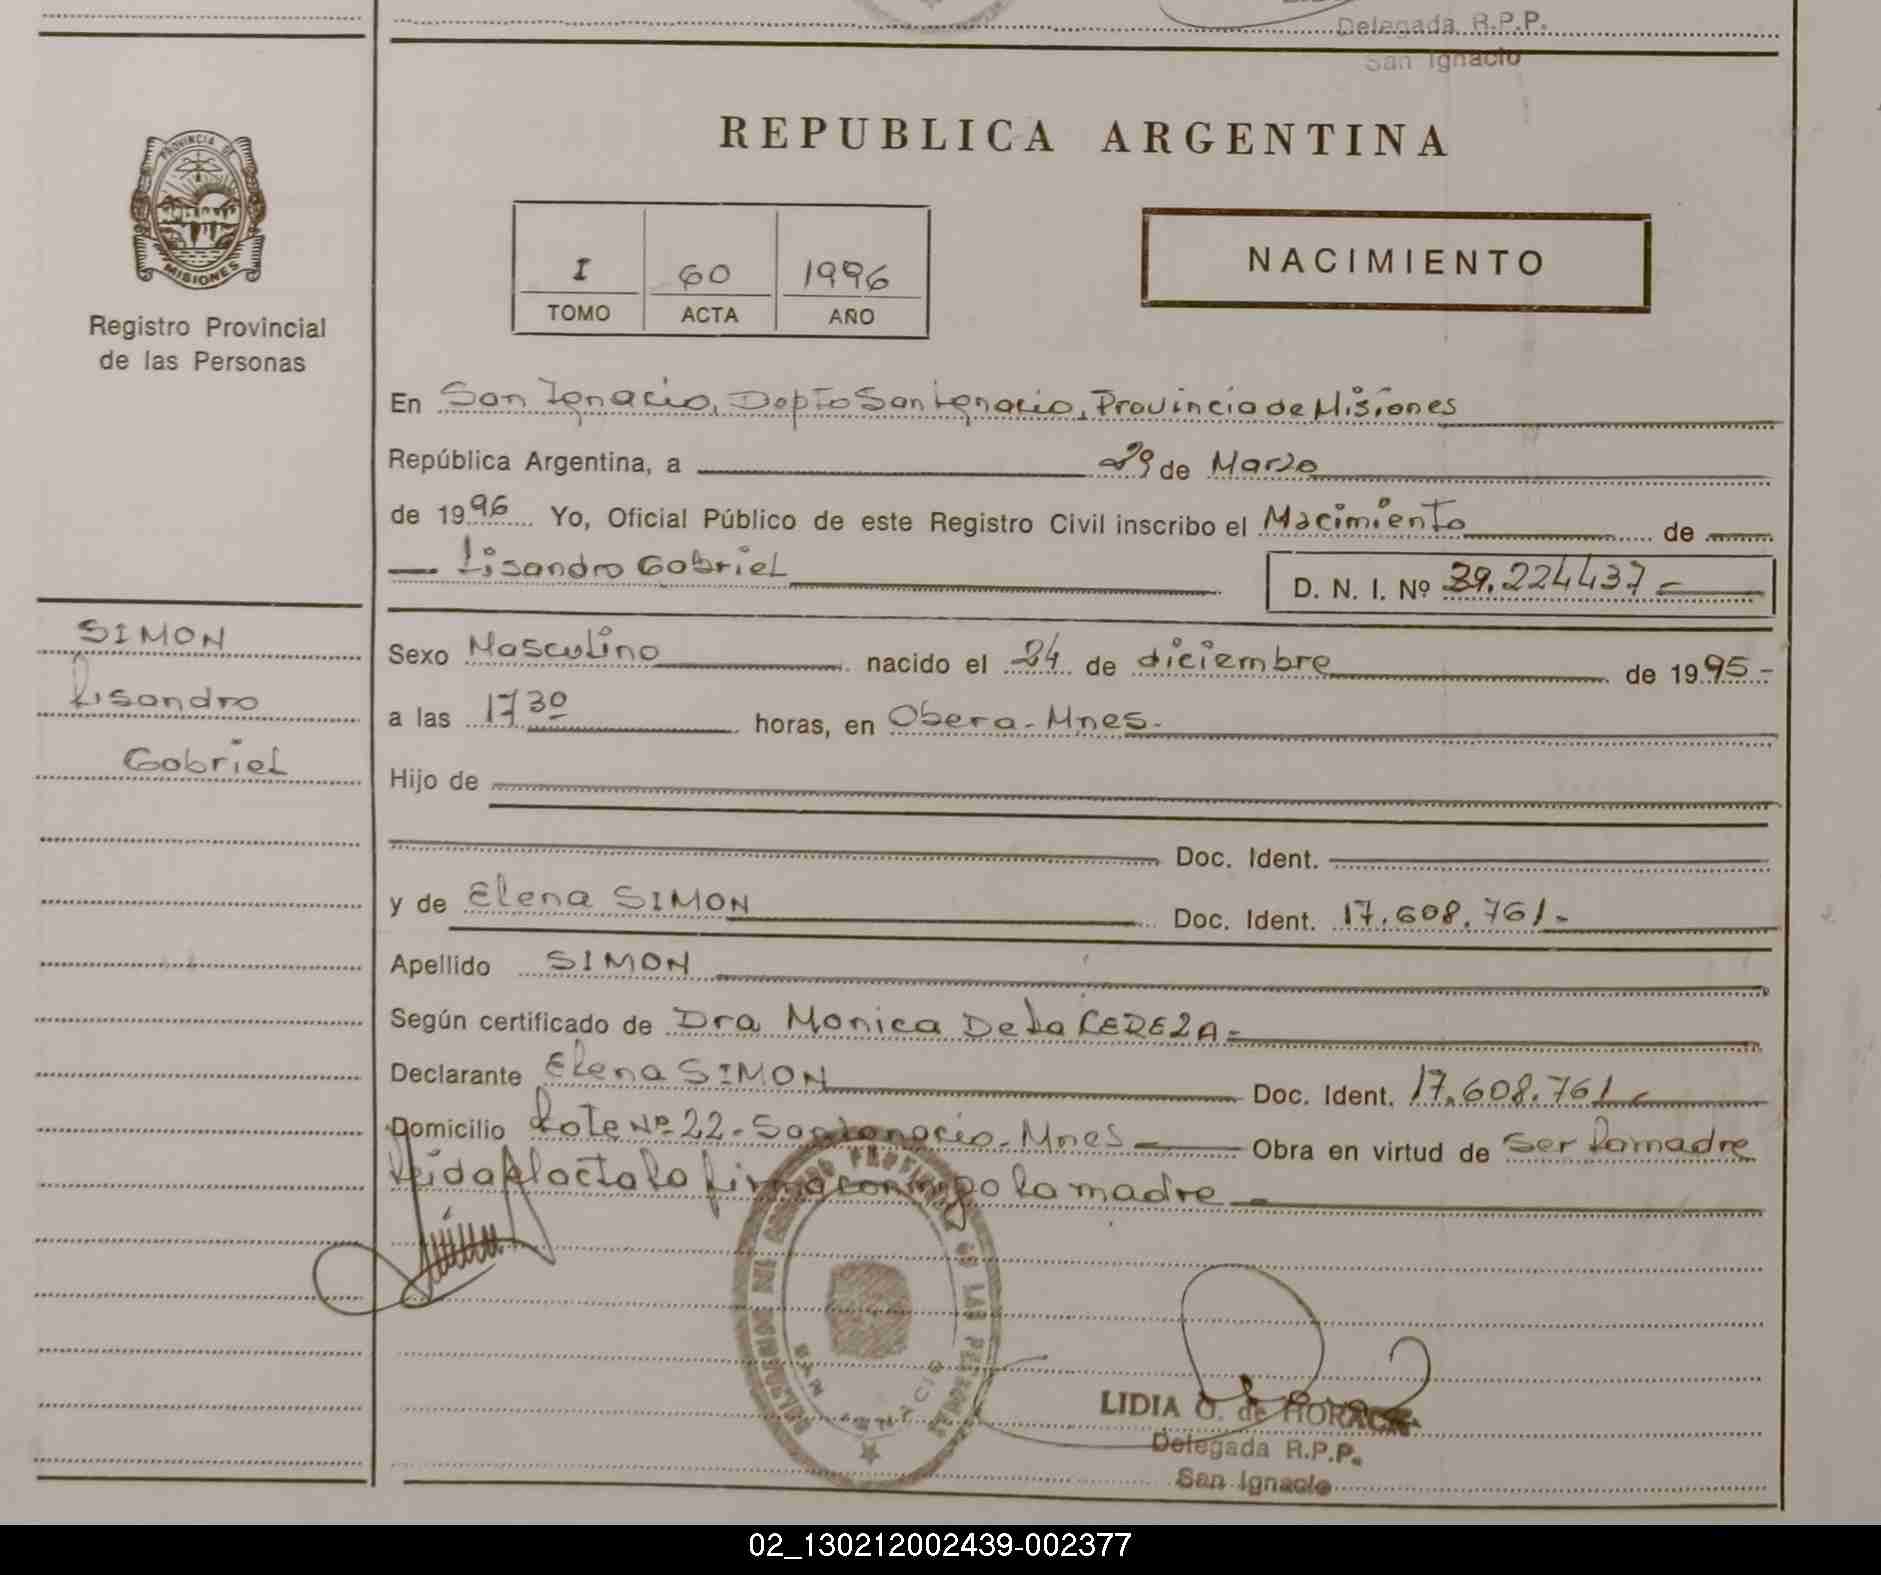 Delegada R.P.P.
San Ignacio
PROVINCIA DE
MISIONES
Registro Provincial
de las Personas
REPUBLICA ARGENTINA
I 60 1996
TOMO ACTA AÑO
NACIMIENTO
En San Ignacio, Depto San Ignacio, Provincia de Misiones
República Argentina, a 29 de Marzo
de 1996 Yo, Oficial Público de este Registro Civil inscribo el Nacimiento de
Lisandro Gabriel D. N. I. Nº 39.224437
SIMON
Lisandro
Gabriel
Sexo Masculino nacido el 24 de diciembre de 1995-
a las 17 30 horas, en Obera-Mnes.
Hijo de
Doc. Ident.
y de Elena SIMON Doc. Ident. 17.608.761-
Apellido SIMON
Según certificado de Dra Monica De La CEREZA-
Declarante Elena SIMON Doc. Ident. 17.608.761-
Domicilio Lote Nº 22-San Ignacio-Mnes Obra en virtud de Ser la madre
Leida el acta la firma conmigo la madre
LIDIA O. de
Delegada R.P.P.
San Ignacio
02_130212002439-002377